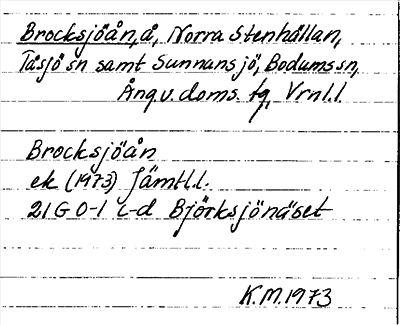 Brocksjöån, å, Norra Stenhållan,
Tåsjö sn samt Sunnansjö, Bodums sn,
Ång.v. doms. tg, Vrnl.l.
Brocksjöån
ek (1973) Jämtl.l.
21G 0-1 c-d Björksjönäset
K.M. 1973